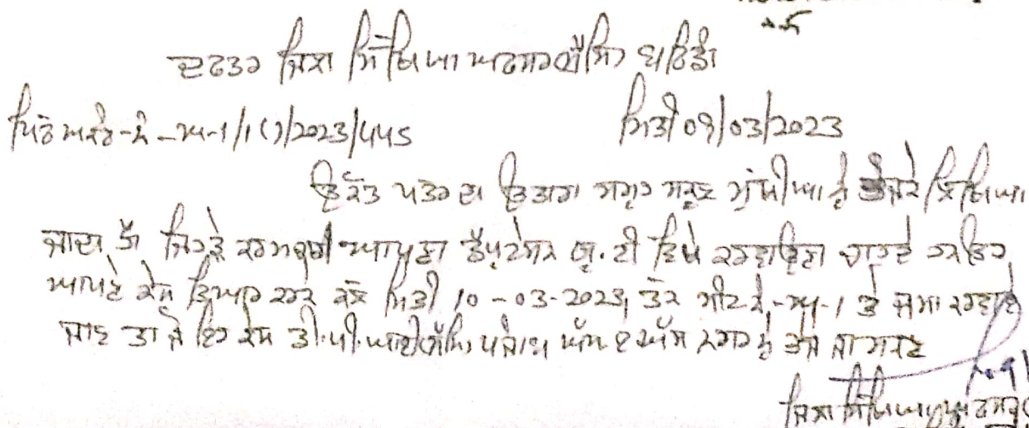 ਦਫਤਰ ਜਿਲਾ ਸਿੱਖਿਆ ਅਫਸਰ (ਸੈ.ਸਿ) ਬਠਿੰਡਾ
ਪਿੱਠ ਅੰਕਣ-ਨੰ-ਅ-1/1( )/2023/445 ਮਿਤੀ 09/03/2023
ਉਕਤ ਪੱਤਰ ਦਾ ਉਤਾਰਾ ਸਮੂਹ ਸਕੂਲ ਮੁੱਖੀਆਂ ਨੂੰ ਭੇਜਕੇ ਲਿਖਿਆ
ਜਾਂਦਾ ਹੈ ਜਿਹੜੇ ਕਰਮਚਾਰੀ ਆਪਣਾ ਡੈਪੂਟੇਸ਼ਨ ਯੂ.ਟੀ ਵਿਖੇ ਕਰਵਾਉਣਾ ਚਾਹੁੰਦੇ ਹਨ ਉਹ
ਆਪਣੇ ਕੇਸ ਤਿਆਰ ਕਰਕੇ ਕੱਲ ਮਿਤੀ 10-03-2023 ਤੱਕ ਸੀਟ ਨੰ-ਅ-1 ਤੇ ਜਮਾ ਕਰਵਾਏ
ਜਾਣ ਤਾਂ ਜੋ ਇਹ ਕੇਸ ਡੀ.ਪੀ.ਆਈ (ਸੈ.ਸਿ) ਪੰਜਾਬ ਐੱਸ ਏ ਐੱਸ ਨਗਰ ਨੂੰ ਭੇਜੇ ਜਾ ਸਕਣ
ਜਿਲਾ ਸਿੱਖਿਆ ਅਫਸਰ